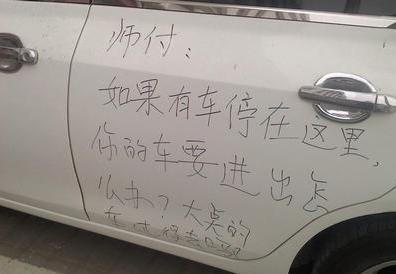 师付:
如果有车停在这里,
你的车要进出怎
么办?大点的
车